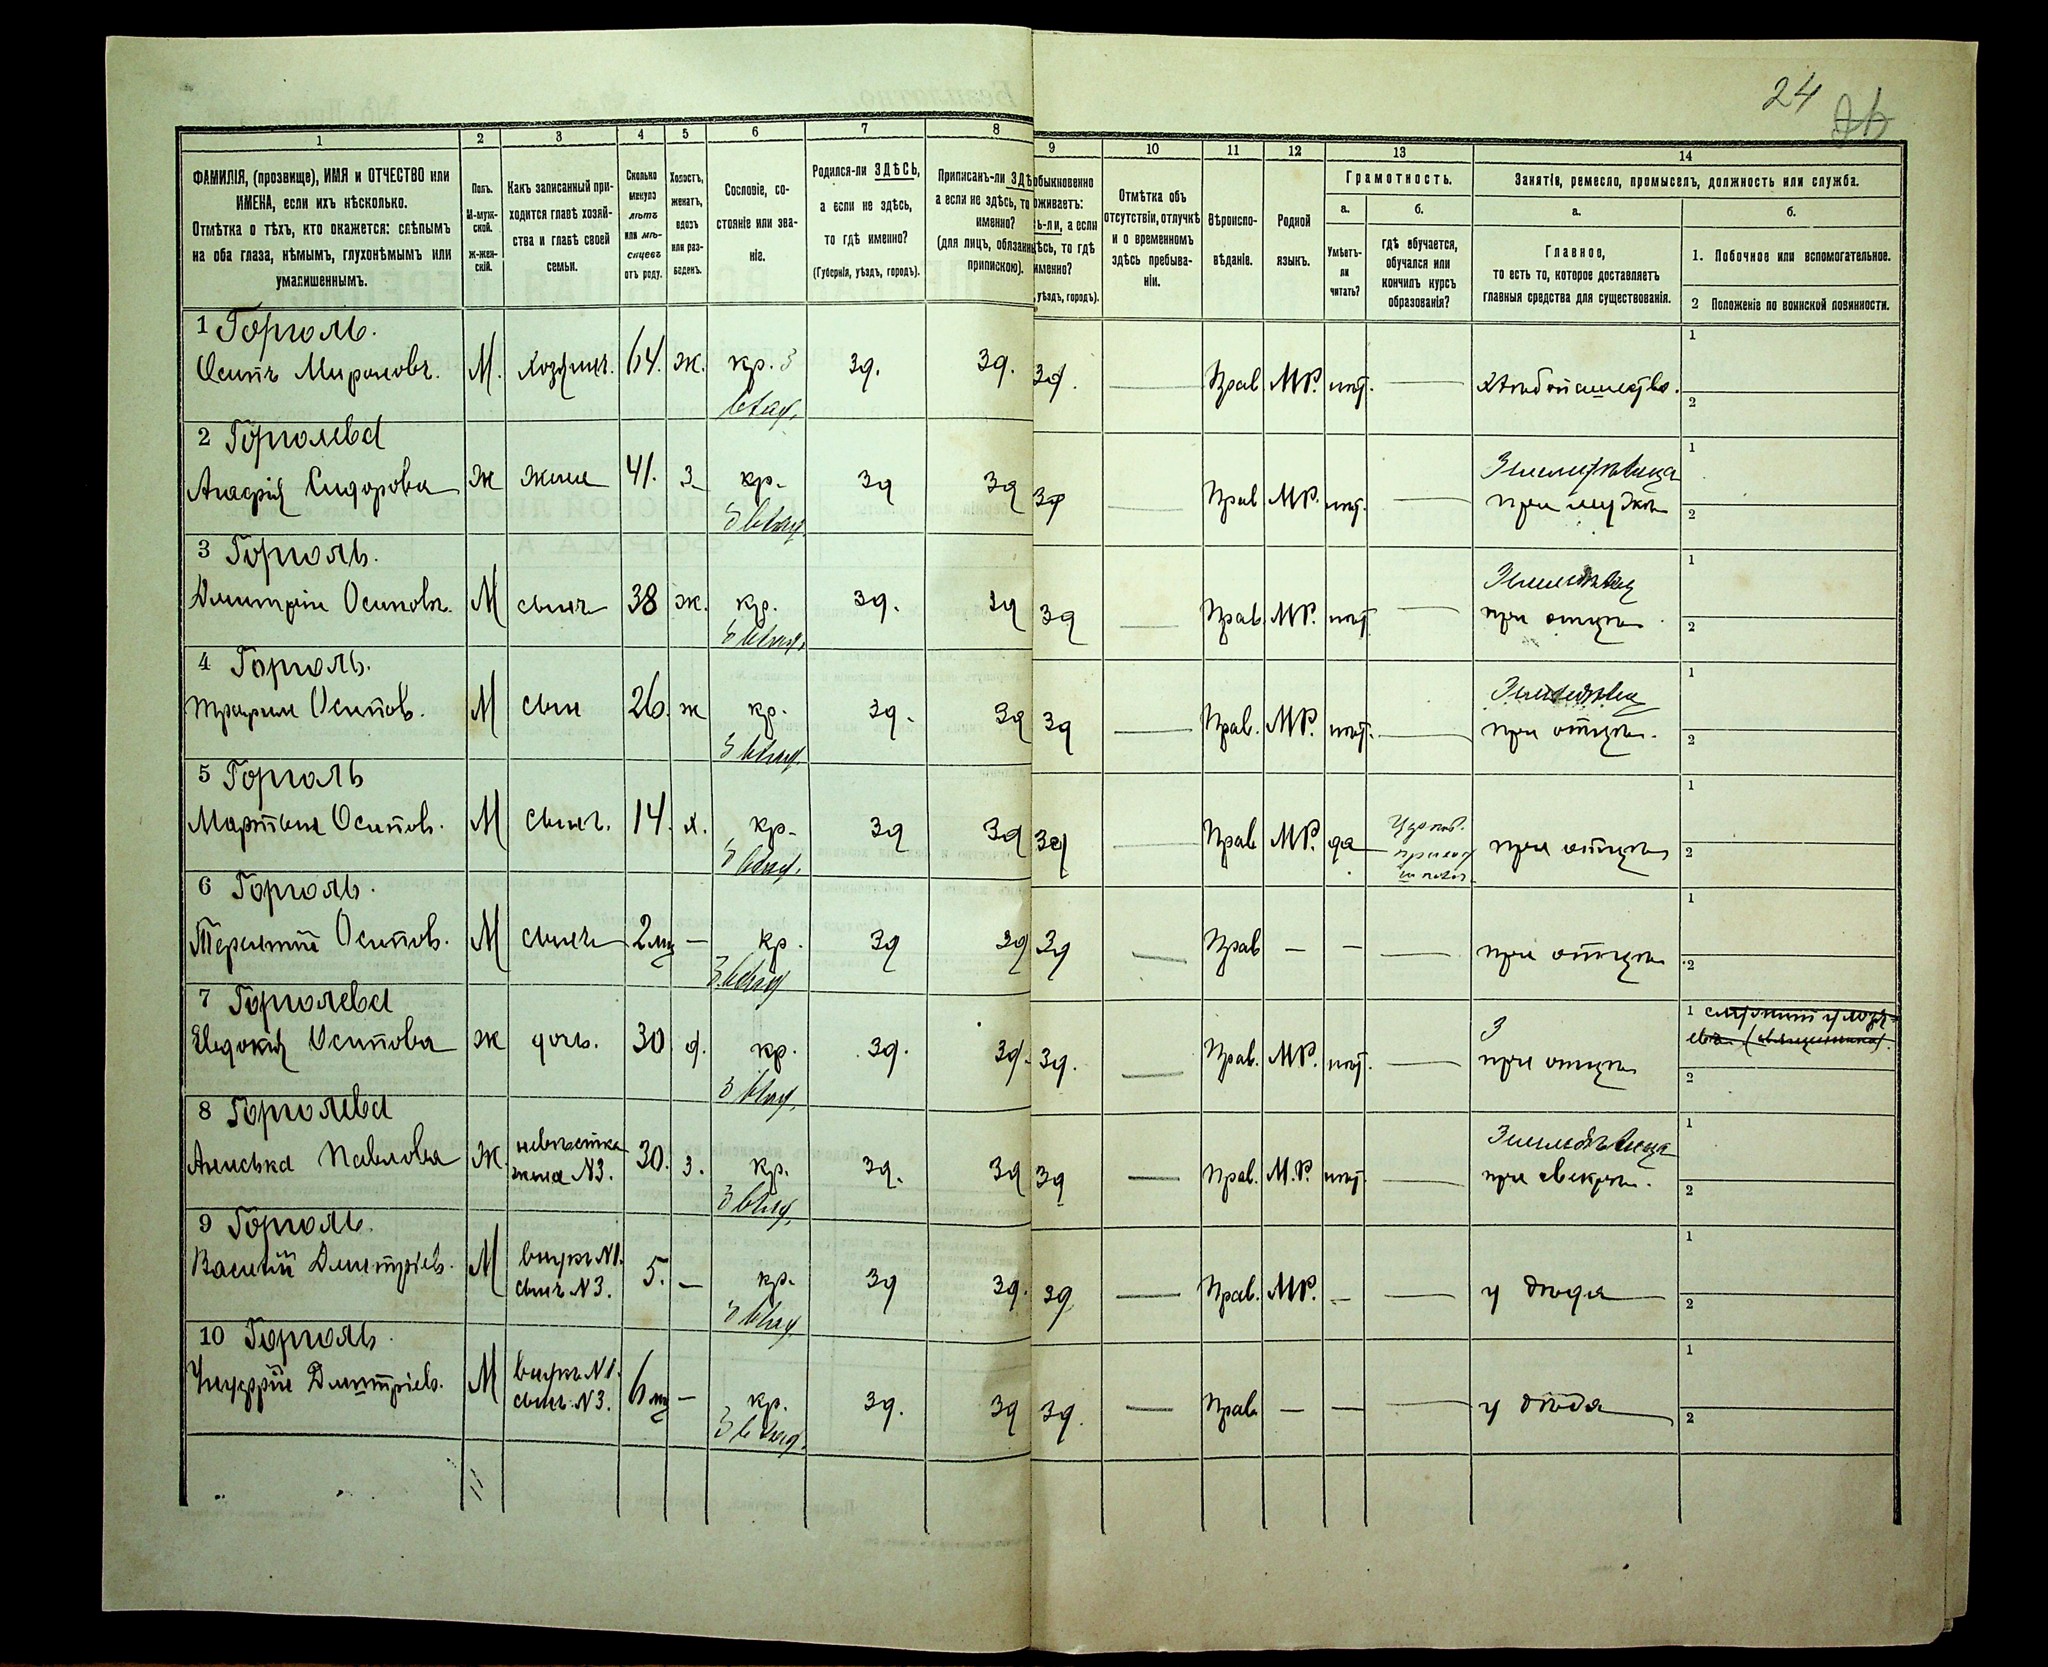 24
1
2
3
4
5
6
7
8
9
10
11
12
13
14
ФАМИЛІЯ, (прозвище), ИМЯ и ОТЧЕСТВО или
ИМЕНА, если ихъ нѣсколько.
Отмѣтка о тѣхъ, кто окажется: слѣпымъ
на оба глаза, нѣмымъ, глухонѣмымъ или
умалишеннымъ.
Полъ.
М-муж-
ской.
ж-жен-
скій.
Какъ записанный при-
ходится главѣ хозяй-
ства и главѣ своей
семьи.
Сколько
минуло
лѣтъ
или мѣ-
сяцевъ
отъ роду.
Холостъ,
женатъ,
вдовъ
или раз-
веденъ.
Сословіе, со-
стояніе или зва-
ніе.
Родился-ли ЗДѢСЬ,
а если не здѣсь,
то гдѣ именно?
(Губернія, уѣздъ, городъ).
Приписанъ-ли ЗДѢ
а если не здѣсь, то
именно?
(для лицъ, обязанны
припискою).
обыкновенно
оживаетъ:
ь-ли, а если
дѣсь, то гдѣ
именно?
, уѣздъ, городъ).
Отмѣтка объ
отсутствіи, отлучкѣ
и о временномъ
здѣсь пребыва-
ніи.
Вѣроиспо-
вѣданіе.
Родной
языкъ.
Грамотность.
а.
Умѣетъ-
ли
читать?
б.
гдѣ обучается,
обучался или
кончилъ курсъ
образованія?
Занятіе, ремесло, промыселъ, должность или служба.
а.
Главное,
то есть то, которое доставляетъ
главныя средства для существованія.
б.
1. Побочное или вспомогательное.
2 Положеніе по воинской повинности.
1 Горголь.
Осипъ Мироновъ. М. хозяинъ. 64. ж. кр. з зд. зд. зд. Прав М.Р. нѣт. хлѣбопашество. 1
влад. 2
2 Горголева
Сидорова ж жена 41. з. кр. зд зд зд Прав М.Р. нѣт. при мужѣ 1
З влад. 2
3 Горголь.
Дмитрій Осиповъ. М сынъ 38 ж. кр. зд. зд зд Прав. М.Р. нѣт при отцѣ 1
З влад. 2
4 Горголь.
Осипов. М сын 26. ж кр. зд. зд зд Прав. М.Р. нѣт. при отцѣ. 1
З влад. 2
5 Горголь
Мартын Осипов. М сынъ. 14. х. кр. зд зд зд Прав М.Р. да при отцѣ 1
З влад. 2
6 Горголь.
Терентій Осипов. М сынъ 2 мц — кр. зд зд зд Прав — — при отцѣ 1
З влад 2
7 Горголева
Евдокія Осипова ж дочь. 30 д. кр. зд. зд. зд. Прав. М.Р. нѣт. З при отцѣ 1
З влад. 2
8 Горголева
Павлова Ж. невѣстка жена N3. 30. з. кр. зд. зд зд Прав. М.Р. нѣт. при свекрѣ. 1
З влад. 2
9 Горголь.
Василій Дмитріев. М внукъ N1. сынъ N3. 5. — кр. зд зд. зд Прав. М.Р. — у дѣда 1
З влад. 2
10 Горголь.
Дмитріев. М внукъ N1. сынъ N3. 6 мц — кр. зд. зд зд. Прав — — у дѣда 1
З влад. 2